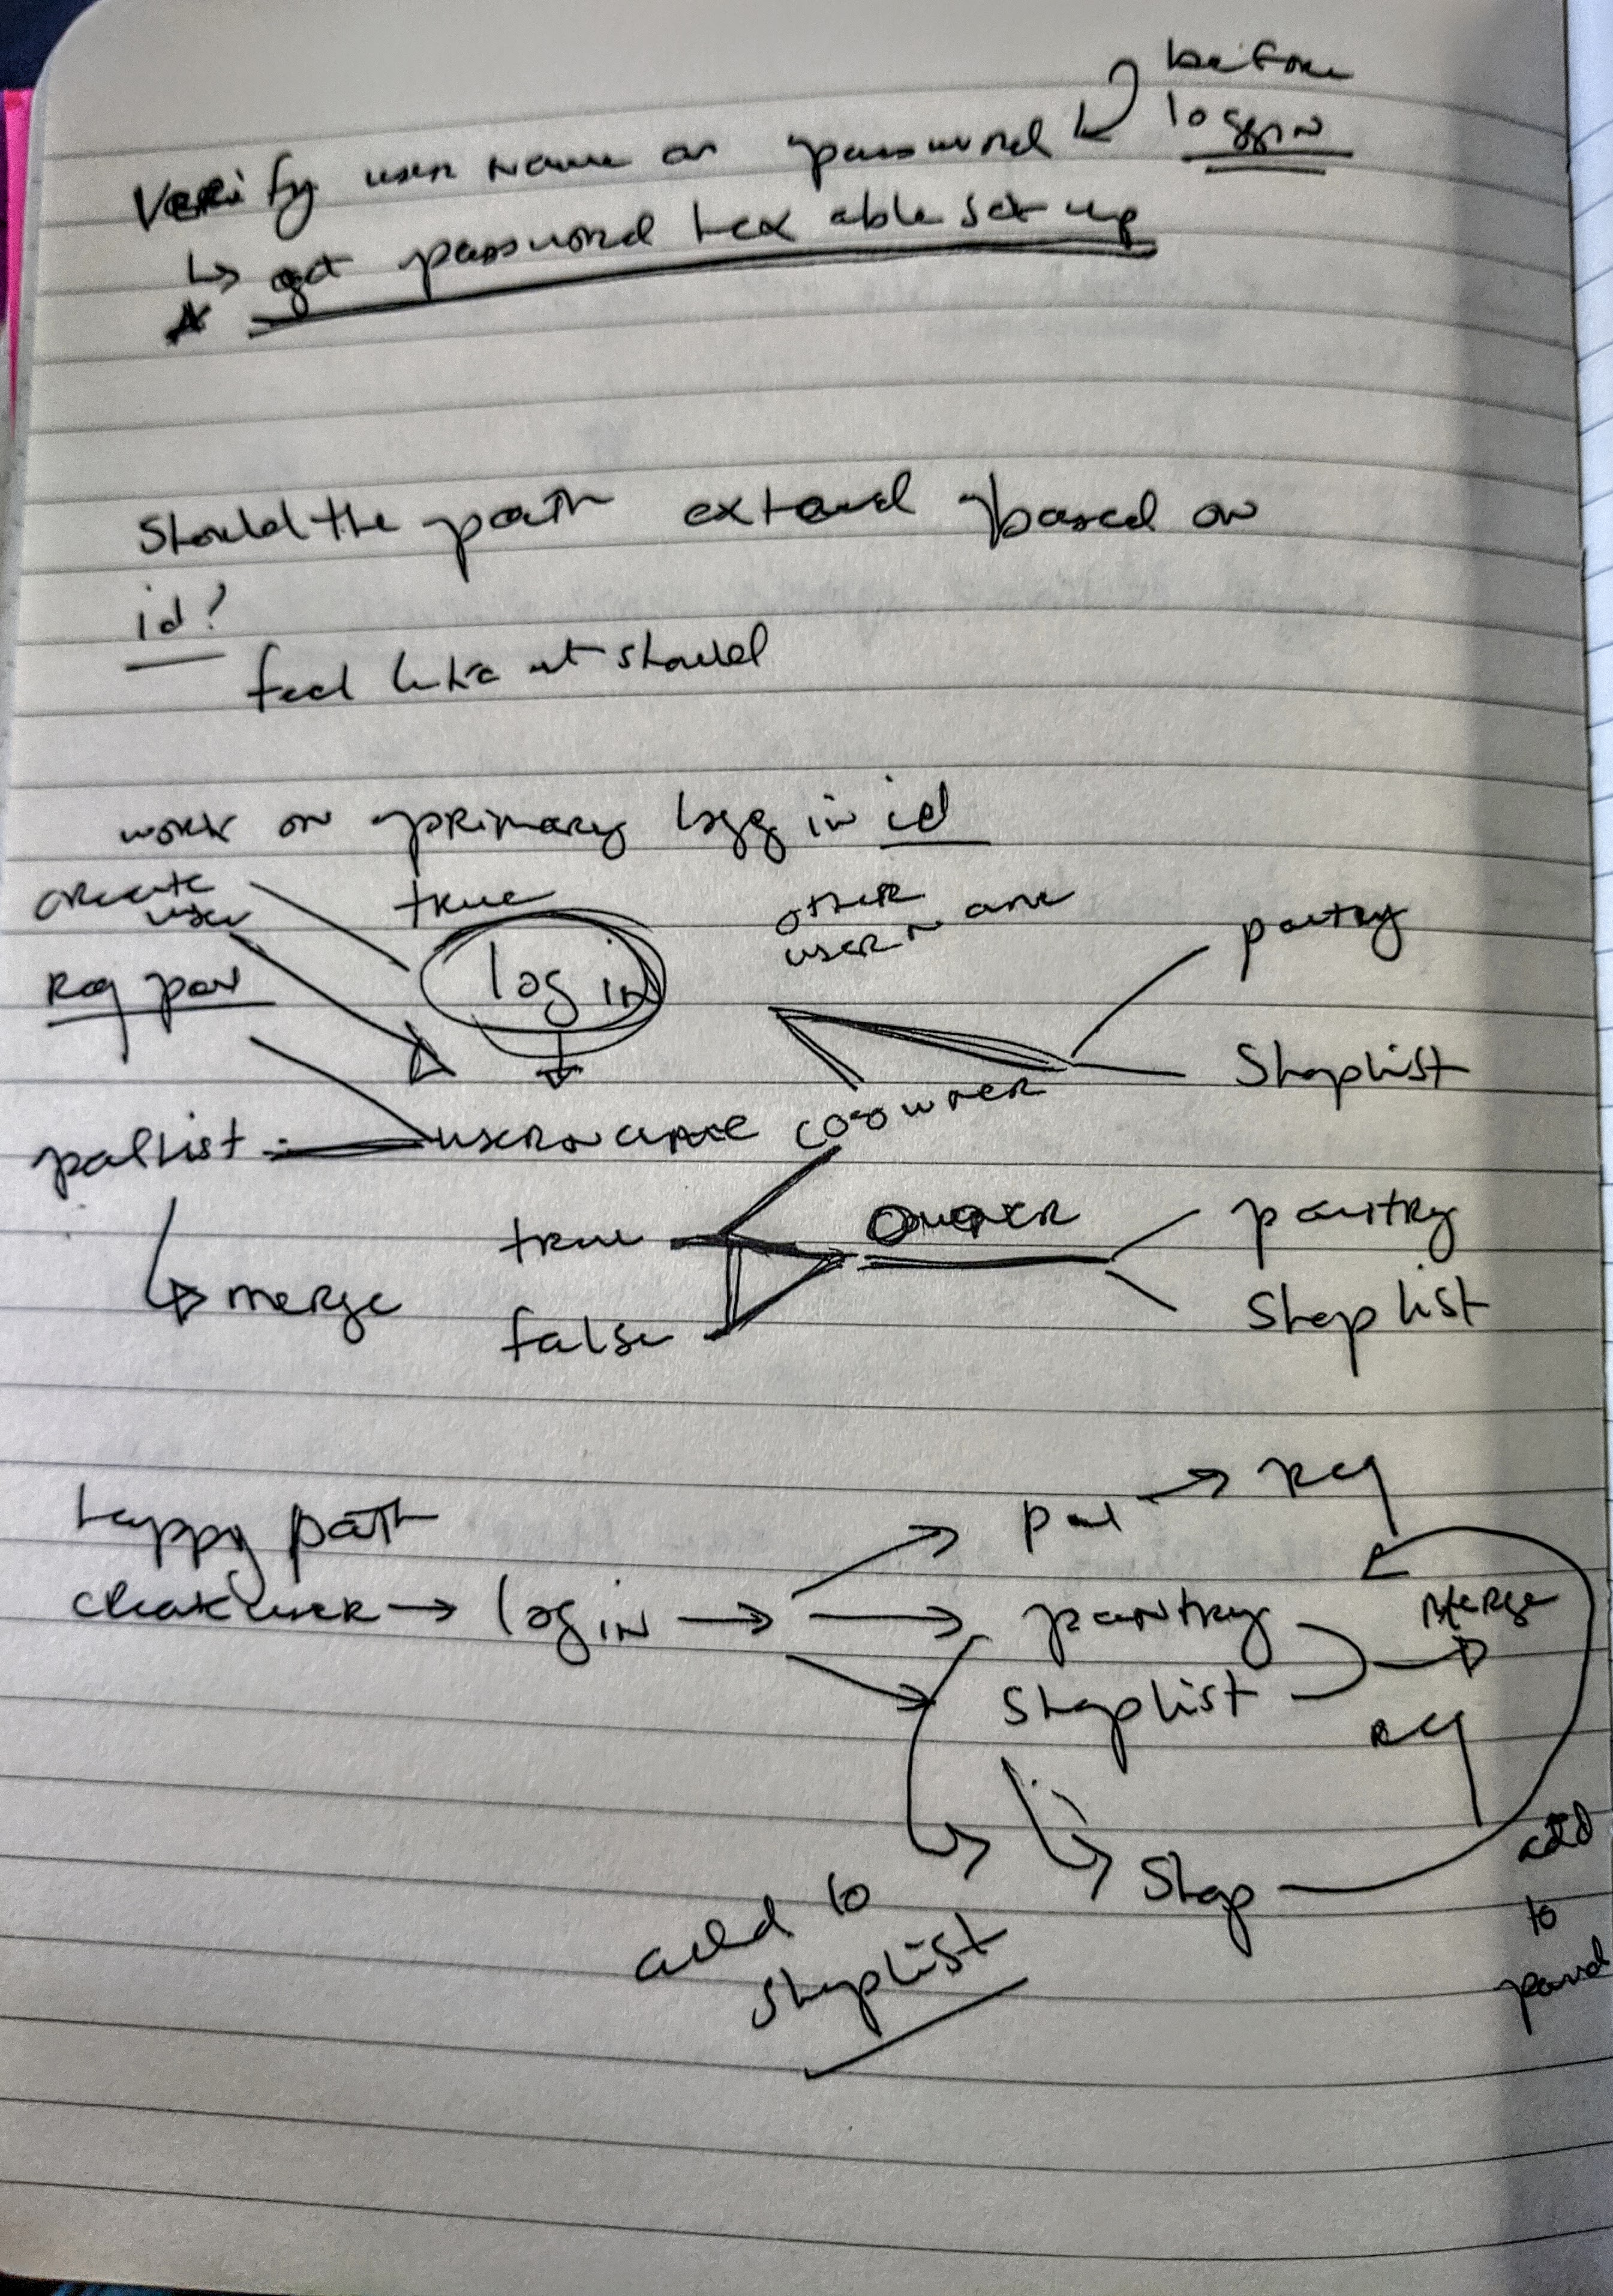 before
Verify user name or password
loggin
get password hex able set up
Should the path extend based on
id?
feel like it should
work on primary logg in id
create
user
true
other
username
pantry
Req pal
log in
Shoplist
pallist
username
coowner
true
owner
pantry
merge
false
Shoplist
happy path
pal → req
user → log in →
pantry
merge
Shoplist
req
add
to
Shop
add to
shoplist